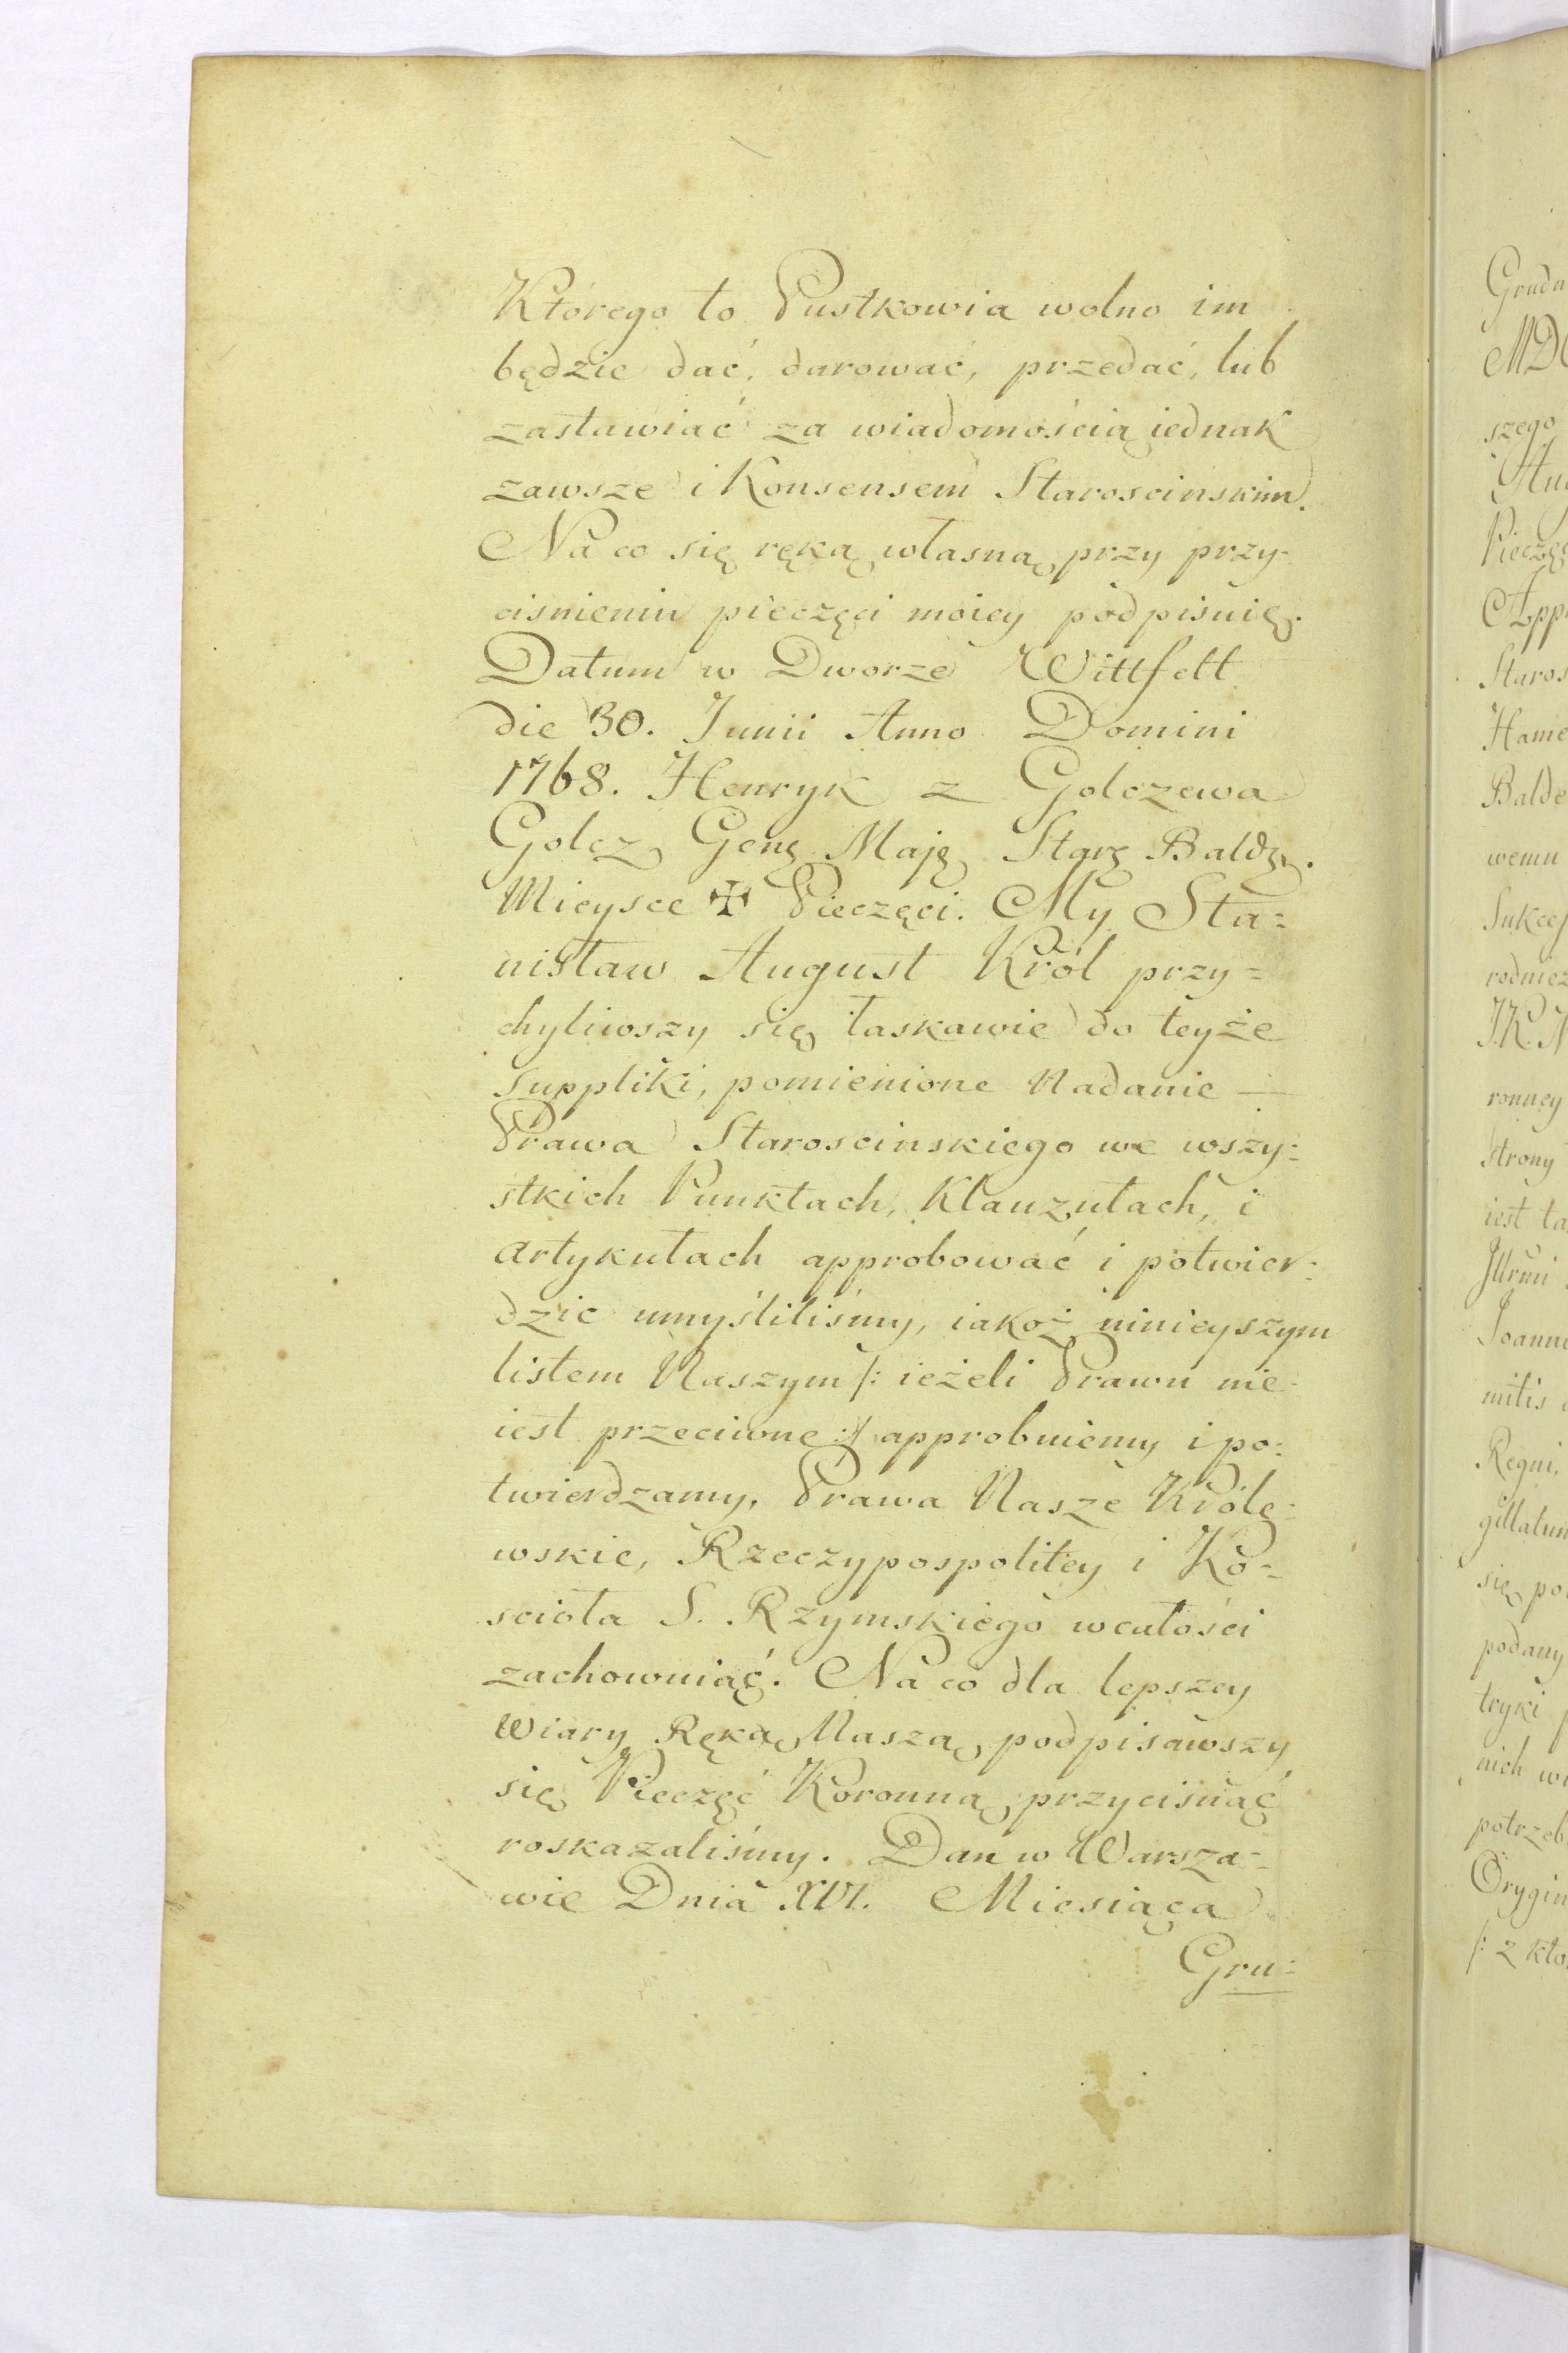 Którego to Pustkowia wolno im
będzie dać, darować, przedać, lub
zastawiać za wiadomością iednak
zawsze i Konsensem Staroscinskim.
Na co się ręką własną przy przy-
ciśnieniu pieczęci moiey podpisuię.
Datum w Dworze Wittfelt
die 30. Junii Anno Domini
1768. Henryk z Golczewa
Golcz Genę Maję Starę Baldzę.
Mieysce ✠ Pieczęci. My Sta=
nisław August Król przy=
chyliwszy się łaskawie do teyże
suppliki, pomienione Nadanie —
Prawa Staroscinskiego we wszy=
stkich Punktach, Klauzułach, i
artykułach approbować i potwier=
dzic umyśliliśmy, iakoż ninieyszym
listem Naszym /: ieżeli Prawu nie
iest przeciwne :/ approbuiemy i po=
twierdzamy, Prawa Nasze Królę=
wskie, Rzeczypospolitey i Ko=
scioła S. Rzymskiego wcałości
zachowuiąć. Na co dla lepszey
Wiary Ręką Naszą podpisawszy
się Pieczęć Koronną przycisnąć
roskazaliśmy. Dan w Warsza=
wie Dnia XVI. Miesiąca
Gru=
Grudn
szego
Pieczęc
Staros
Hame
Balde
wemu
rodnicz
ronney
strony
iest
Joanne
mitis
Regni,
się
podany
tryki
nich
potrzeb
Orygin
/: z